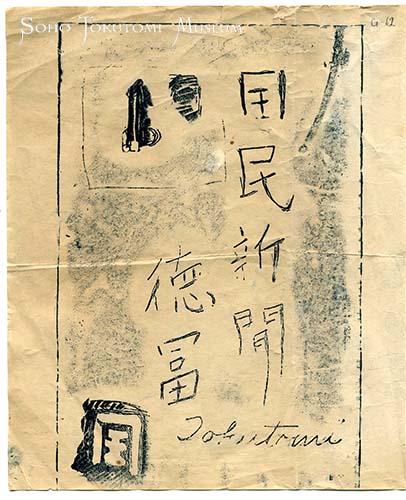 SOHO TOKUTOMI MUSEUM
G 12
国民新聞
德冨
Tokutomi
国